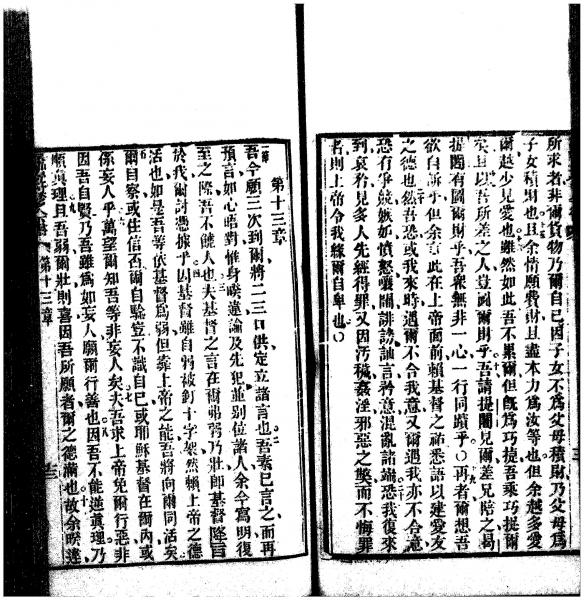 所求者非爾貨物乃爾自己因子女不爲父母積財乃父母爲
子女積財也且余情願費財且盡本力爲汝等也但余越多愛
爾越少見愛也雖然如此吾不累爾但旣爲巧捷吾乘巧捉爾
矣且以吾所差之人豈圖爾財乎吾請提闥兄爾差兄陪之曷
提闥有圖爾財乎吾衆無非一心一行同蹟乎○再者爾想吾
欲自訴乎但余言此在上帝面前賴基督之祐悉語以建愛友
之德也然吾恐或我來時遇爾不合我意又爾遇我亦不合意
恐有爭競嫉妒憤怒嚷鬧誹謗訕言矜意混亂諸端恐我復來
到哀矜見多人先經得罪又因汚穢姦淫邪惡之獘而不悔罪
者則上帝令我緣爾自卑也○
第十三章
吾今願三次到爾將二三口供定立諸言也吾素已言之而再
預言如心晤對惟身暌違論及先犯並别位諸人余今寫明復
至之際吾不饒人也夫基督之言在爾弗弱乃壯卽基督隆言
於我爾討憑據乎因基督雖自弱被釘十字架然賴上帝之德
活也如是吾等依基督爲弱但靠上帝之能吾將向爾同活矣
爾自察或住信否爾自驗豈不識自已或耶穌基督在爾內或
係妄人乎萬望爾知吾等非妄人矣夫吾求上帝免爾行惡非
因吾自賢乃吾雖爲如妄人願爾行善也因吾不能逆眞理乃
順眞理且吾弱爾壯則喜因吾所願者爾之德滿也故余暌違
第十三章